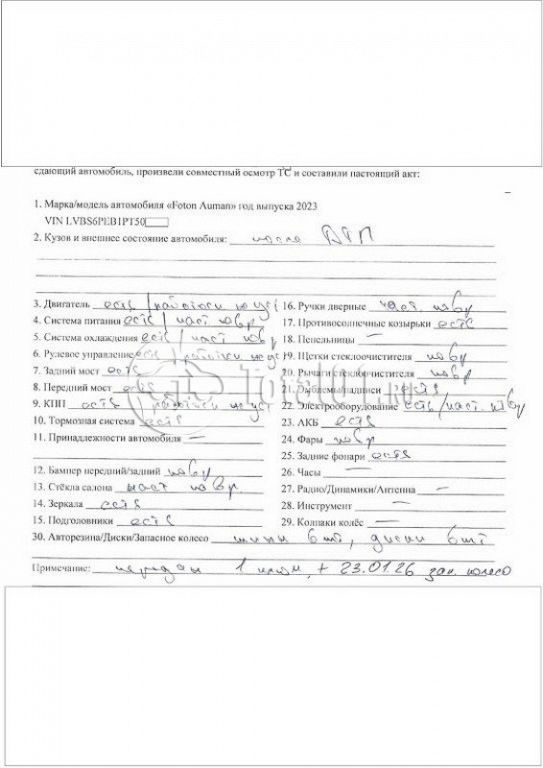 сдающий автомобиль, произвели совместный осмотр ТС и составили настоящий акт:
1. Марка/модель автомобиля «Foton Auman» год выпуска 2023
VIN LVBS6PEB1PT50
2. Кузов и внешнее состояние автомобиля: после ДТП
3. Двигатель есть / работосп не уст
4. Система питания есть / част повр
5. Система охлаждения есть / част повр
6. Рулевое управление есть / работосп не уст
7. Задний мост есть
8. Передний мост есть
9. КПП есть / работосп не уст
10. Тормозная система есть
11. Принадлежности автомобиля —
12. Бампер передний/задний повр
13. Стёкла салона част повр.
14. Зеркала есть
15. Подголовники есть
16. Ручки дверные част. повр
17. Противосолнечные козырьки есть
18. Пепельницы —
19. Щетки стеклоочистителя повр
20. Рычаги стеклоочистителя повр
21. Эмблемы/надписи есть
22. Электрооборудование есть/част. повр
23. АКБ есть
24. Фары повр
25. Задние фонари есть
26. Часы —
27. Радио/Динамики/Антенна —
28. Инструмент —
29. Колпаки колёс —
30. Авторезина/Диски/Запасное колесо шины 6 шт, диски 6 шт
Примечание: передан 1 ключ, + 23.01.26 зап. колесо